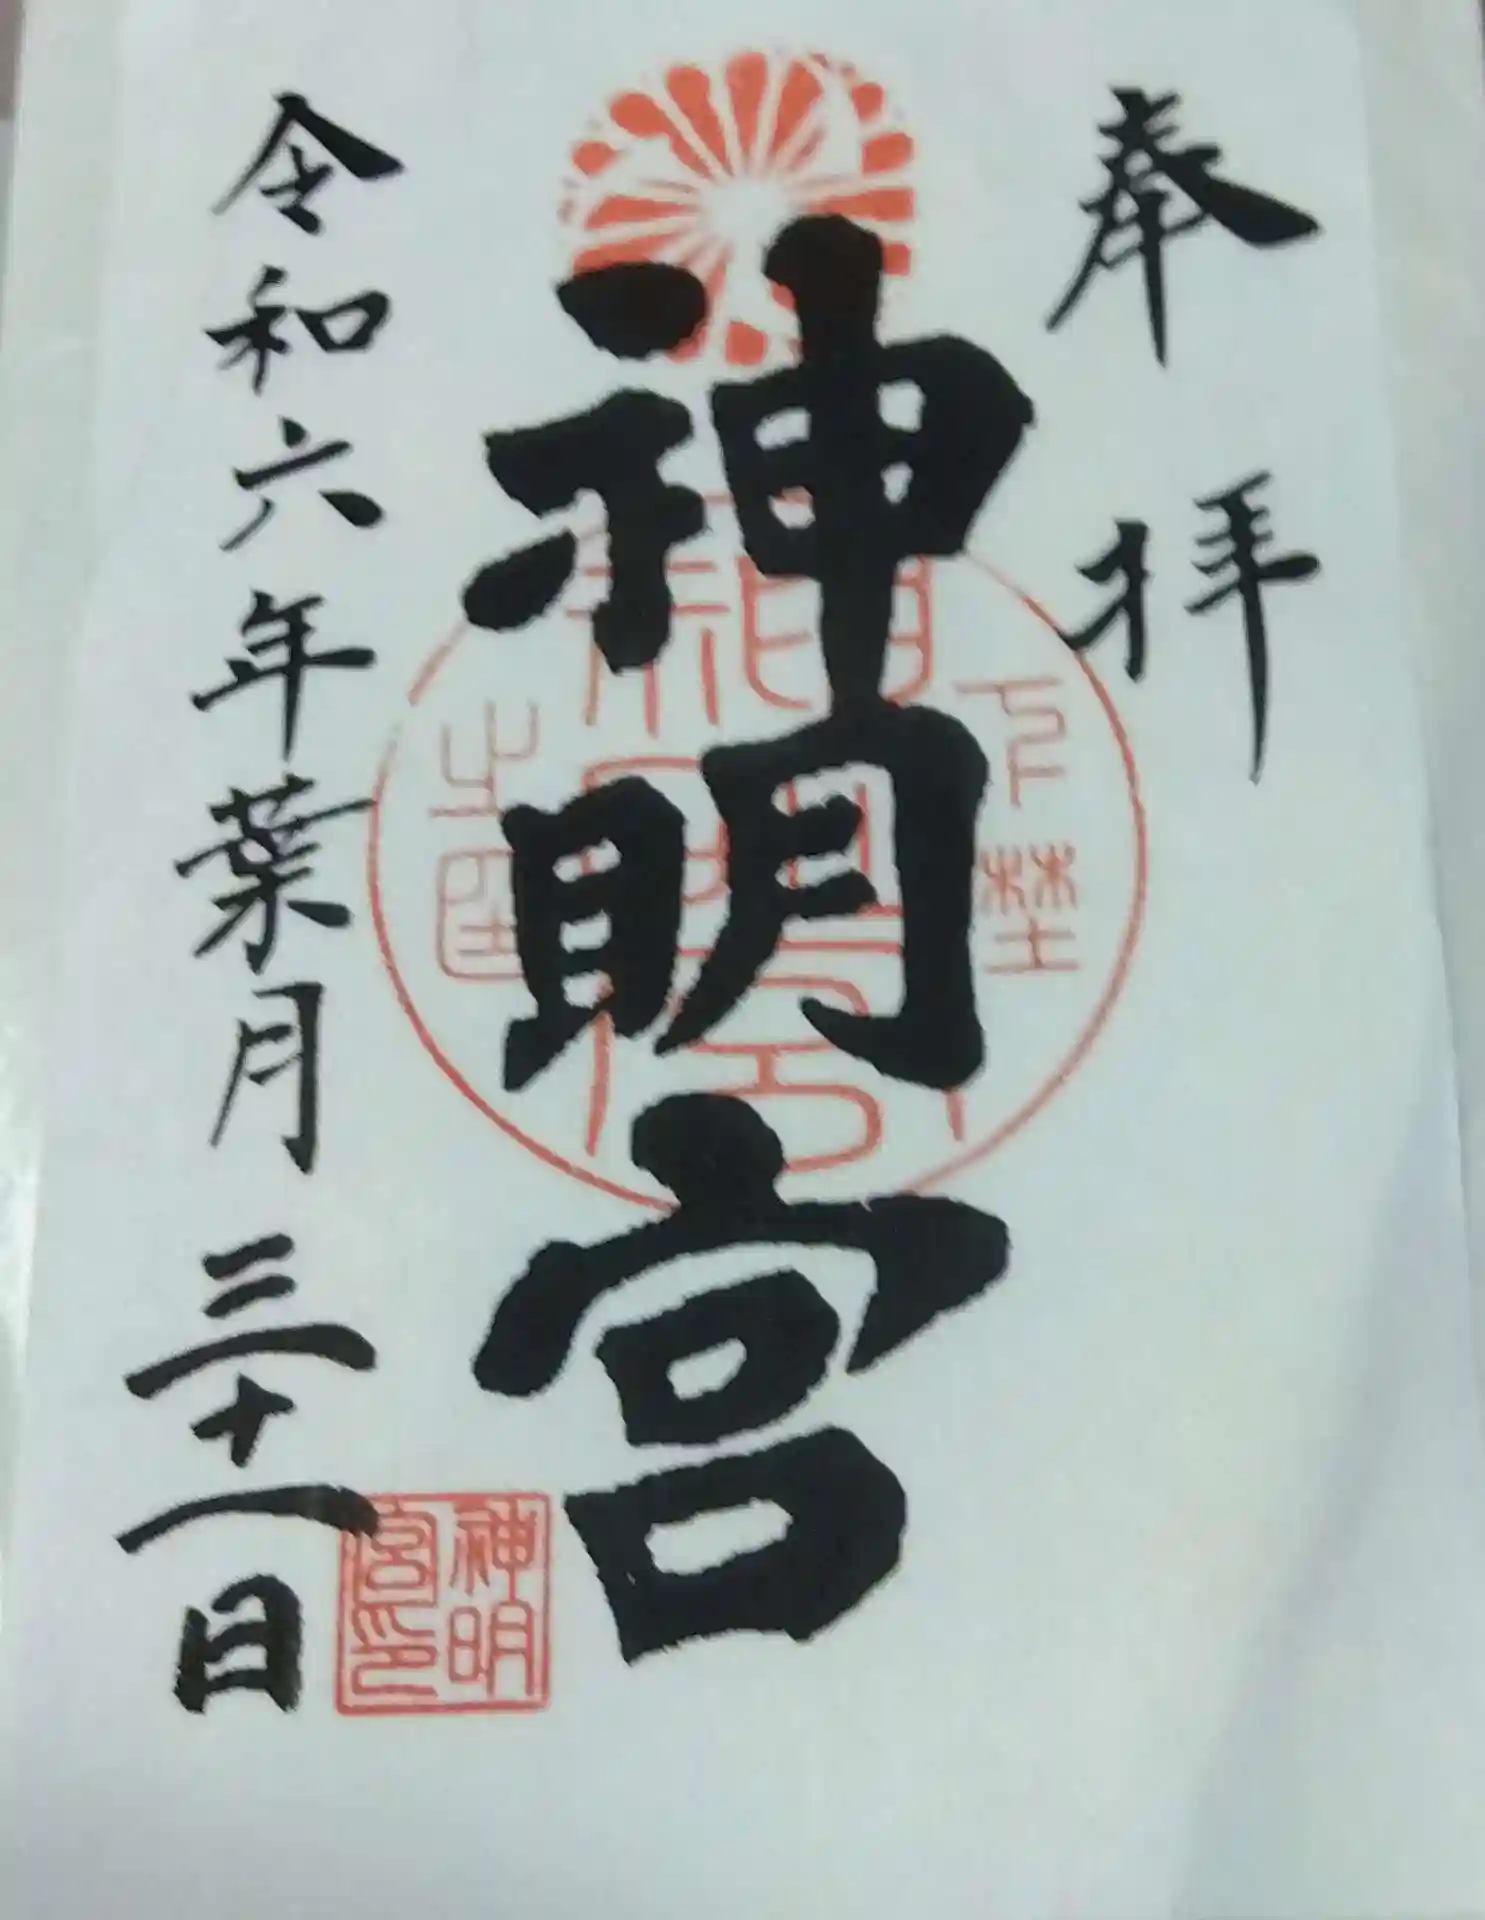 奉拝
神明宮
令和六年葉月三十一日
神明
宮印